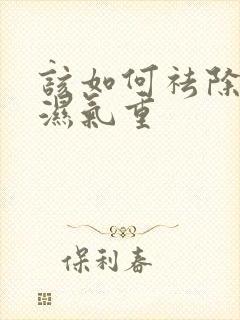 該如何祛除
濕氣重
保利春